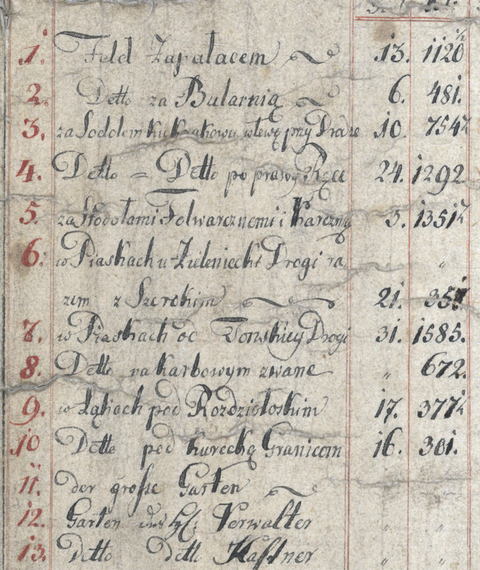 1. Feld Zapalacem 13. 1120½
2. Detto za Bularnią 6. 481.
3. za Sodolem ku Krakowu w lewę przy Drodze 10. 754½
4. Detto = Detto po prawey Ręce 24. 1292
5. za Stodołami Folwarcznemi i Karczmą 3. 1351½
6. w Piaskach u Zielenieckie Drogi ra „
zem z Szerokim 21. 351.
7. w Piaskach od Drogi 31. 1585.
8. Detto na karbowym zwane „ 672.
9. w Łąkach pod 17. 377½
10 Detto pod Granicem 16. 301.
11. der große Garten
12. Garten Verwalter „ „
13. Detto detto Kastner „ „